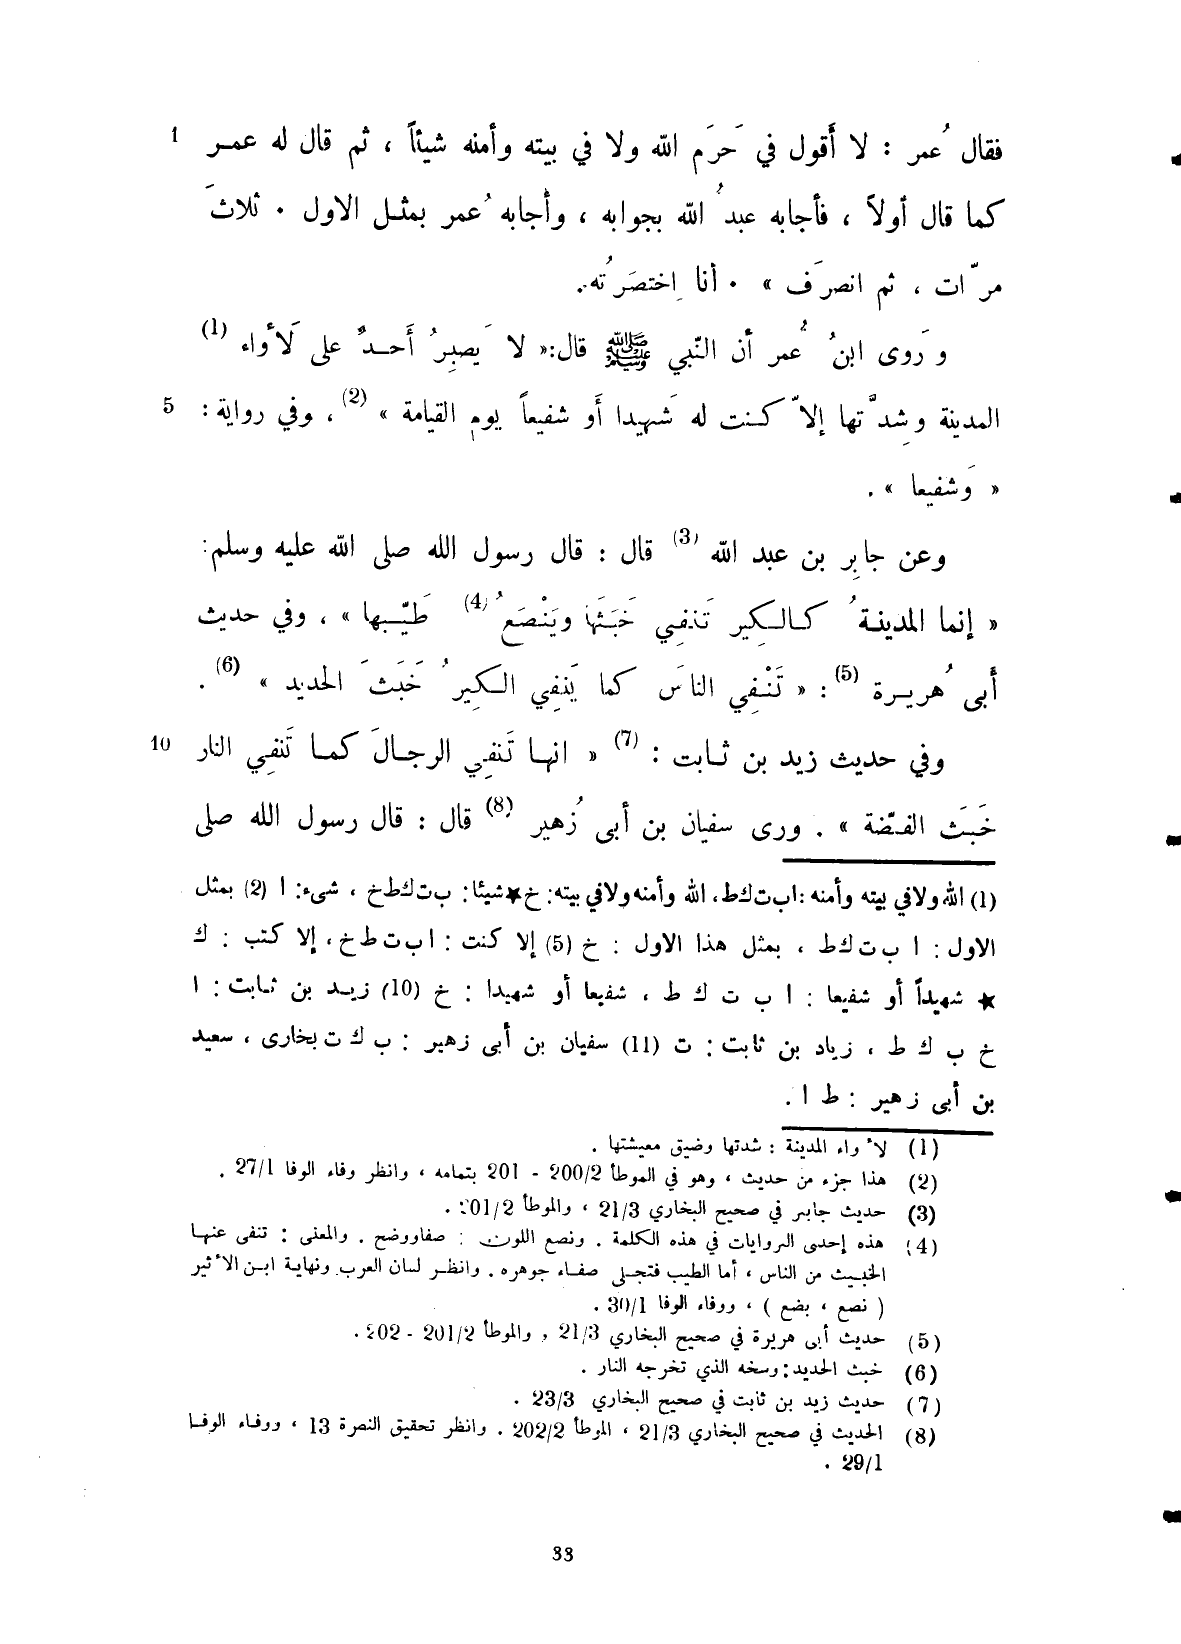 فقال عُمر : لا أَقول في حَرَم الله ولا في بيته وأمنه شيئاً ، ثم قال له عمر 1
كما قال أولاً ، فأجابه عبدُ الله بجوابه ، وأجابه عُمر بمثل الاول . ثلاثَ
مرّات ، ثم انصرَف » . أنا اختصَرتُه .
وَروى ابنُ عُمر أن النّبي ﷺ قال :« لا يَصبِرُ أَحدٌ على لَأواء (1)
المدينة وشِدَّتها إلاّ كنت له شَهيدا أَو شفيعاً يوم القيامة » (2) ، وفي رواية : 5
« وَشفيعا » .
وعن جابِر بن عبد الله (3) قال : قال رسول الله صلى الله عليه وسلم :
« إنما المدينةُ كالكِير تَنفِي خَبَثَها ويَنْصَعُ (4) طَيّبها » ، وفي حديث
أبى هُريرة (5) : « تَنْفِي الناسَ كما يَنفِي الكِيرُ خَبَثَ الحديد » (6) .
وفي حديث زيد بن ثابت : (7) « انها تَنفِي الرجالَ كما تَنفِي النار 10
خَبَثَ الفضّة » . ورى سفيان بن أبى زُهير (8) قال : قال رسول الله صلى
(1) الله ولا في بيته وأمنه : ا ب ت ك ط ، الله وأمنه ولا في بيته : خ ★ شيئا : ب ت ك ط خ ، شيء : ا (2) بمثل
الاول : ا ب ت ك ط ، بمثل هذا الاول : خ (5) إلا كنت : ا ب ت ط خ ، إلا كتب : ك
★ شهيداً أو شفيعا : ا ب ت ك ط ، شفيعا أو شهيدا : خ (10) زيد بن ثابت : ا
خ ب ك ط ، زياد بن ثابت : ت (11) سفيان بن أبى زهير : ب ك ت بخارى ، سعيد
بن أبى زهير : ط ا .
(1) لأواء المدينة : شدتها وضيق معيشتها .
(2) هذا جزء من حديث ، وهو في الموطأ 200/2 - 201 بتمامه ، وانظر وفاء الوفا 27/1 .
(3) حديث جابر في صحيح البخاري 21/3 ، والموطأ 201/2 .
(4) هذه إحدى الروايات في هذه الكلمة . ونصع اللون : صفا ووضح . والمعنى : تنفى عنها
الخبيث من الناس ، أما الطيب فتجلى صفاء جوهره . وانظر لسان العرب ونهاية ابن الأثير
( نصع ، بضع ) ، ووفاء الوفا 30/1 .
(5) حديث أبى هريرة في صحيح البخاري 21/3 ، والموطأ 201/2 - 202 .
(6) خبث الحديد : وسخه الذي تخرجه النار .
(7) حديث زيد بن ثابت في صحيح البخاري 23/3 .
(8) الحديث في صحيح البخاري 21/3 ، الموطأ 202/2 . وانظر تحقيق النصرة 13 ، ووفاء الوفا
29/1 .
33